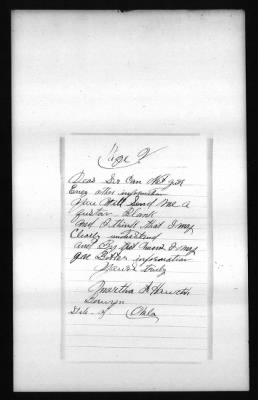 Page 2
Dear Sir Can Not give
Eney other information
you Will Send Me a
Blank
and I think that I may
Clearly understand
and By that I may
give Better information
yours truly
Martha A
State of Okla